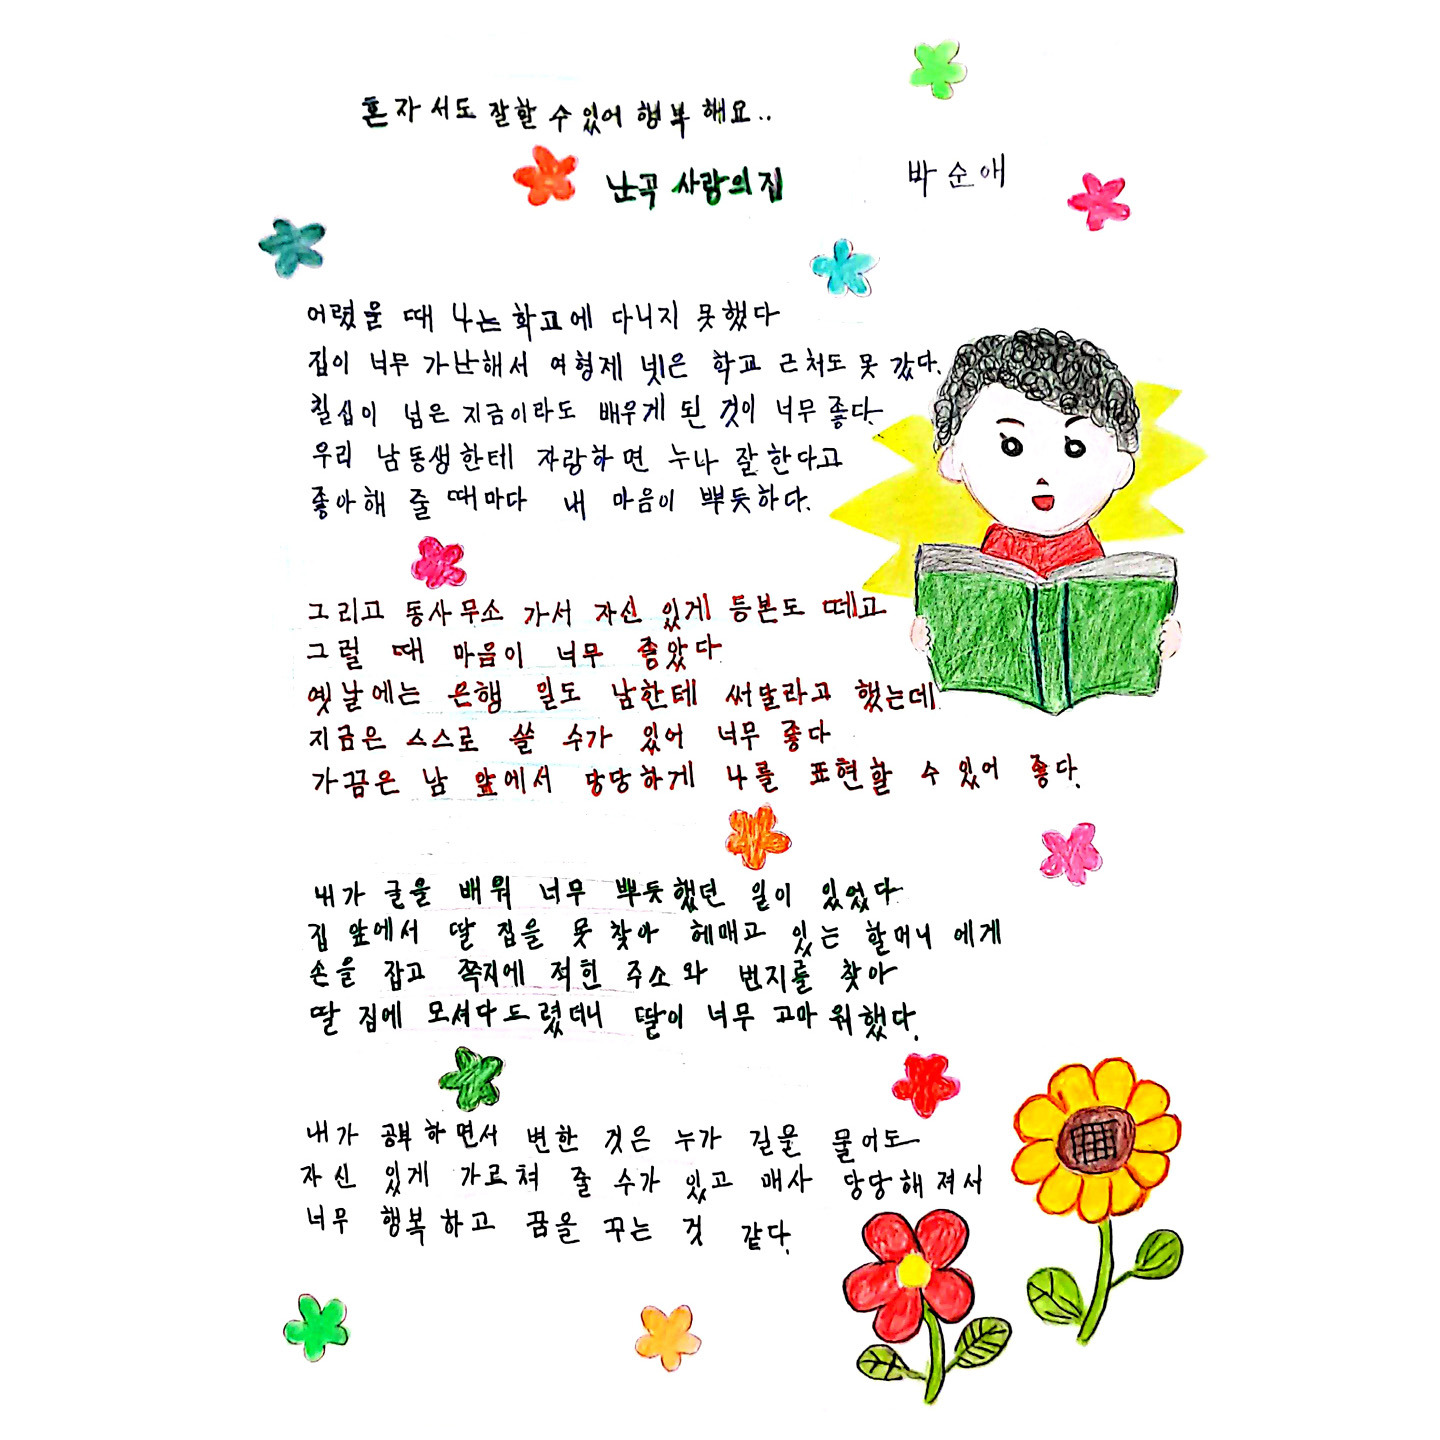 혼자서도 잘할 수 있어 행복해요..
난곡 사랑의집
박순애
어렸을 때 나는 학교에 다니지 못했다
집이 너무 가난해서 여형제 넷은 학교 근처도 못 갔다.
칠십이 넘은 지금이라도 배우게 된 것이 너무 좋다.
우리 남동생한테 자랑하면 누나 잘한다고
좋아해 줄 때마다 내 마음이 뿌듯하다.
그리고 동사무소 가서 자신 있게 등본도 떼고
그럴 때 마음이 너무 좋았다
옛날에는 은행 일도 남한테 써달라고 했는데
지금은 스스로 쓸 수가 있어 너무 좋다
가끔은 남 앞에서 당당하게 나를 표현할 수 있어 좋다.
내가 글을 배워 너무 뿌듯했던 일이 있었다
집 앞에서 딸 집을 못 찾아 헤매고 있는 할머니 에게
손을 잡고 쪽지에 적힌 주소와 번지를 찾아
딸 집에 모셔다드렸더니 딸이 너무 고마워했다.
내가 공부하면서 변한 것은 누가 길을 물어도
자신 있게 가르쳐 줄 수가 있고 매사 당당해져서
너무 행복하고 꿈을 꾸는 것 같다.